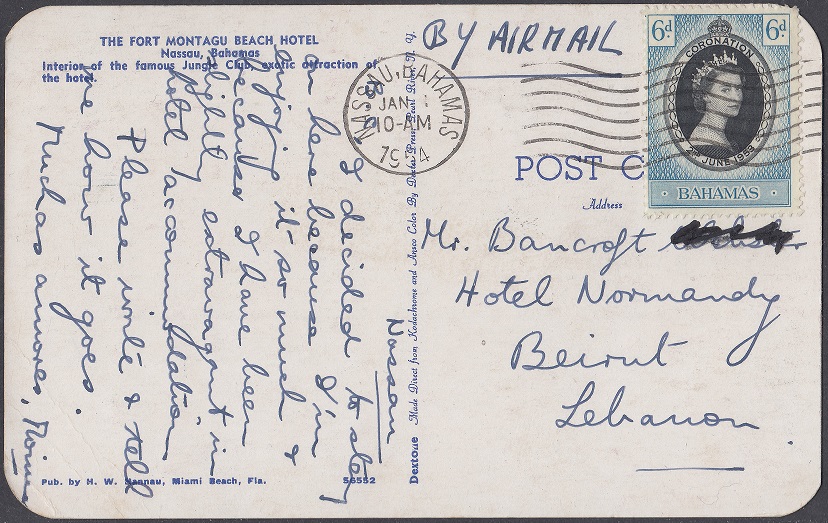 THE FORT MONTAGU BEACH HOTEL
Nassau, Bahamas
Interior of the famous Jungle Club, exotic attraction of
the hotel.
Nassau
I decided to stay
on here because I'm
enjoying it so much &
because I have been
slightly extravagant in
hotel accommodation
Please write & tell
me how it goes.
Muchas amores,
Pub. by H. W. Hannau, Miami Beach, Fla.
56552
Dextone Made Direct from Kodachrome and Ansco Color By Dexter Press, Pearl River, N. Y.
BY AIRMAIL
NASSAU·BAHAMAS
JAN
10-AM
POST C
Address
6d 6d
CORONATION
2ND JUNE 1953
BAHAMAS
Mr. Bancroft
Hotel Normandy
Beirut
Lebanon